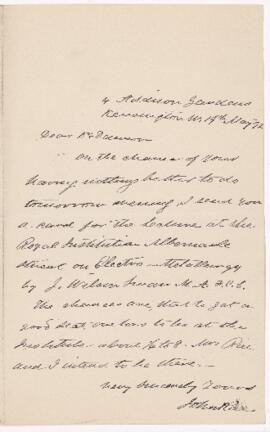 4 Addison Gardens
Kensington W. 19th May/92
Dear Dr
On the chance of your
having nothing better to do
tomorrow evening I send you
a card for the lecture at the
Royal Institution Albemarle
Street on Electro-Metallurgy
by J. Wilson Swan M.A. F.C.S.
The chances are, that to get a
good seat, one has to be at the
Institute about to 8. Mrs Rae
and I intend to be there.
Very sincerely yours
John Rae